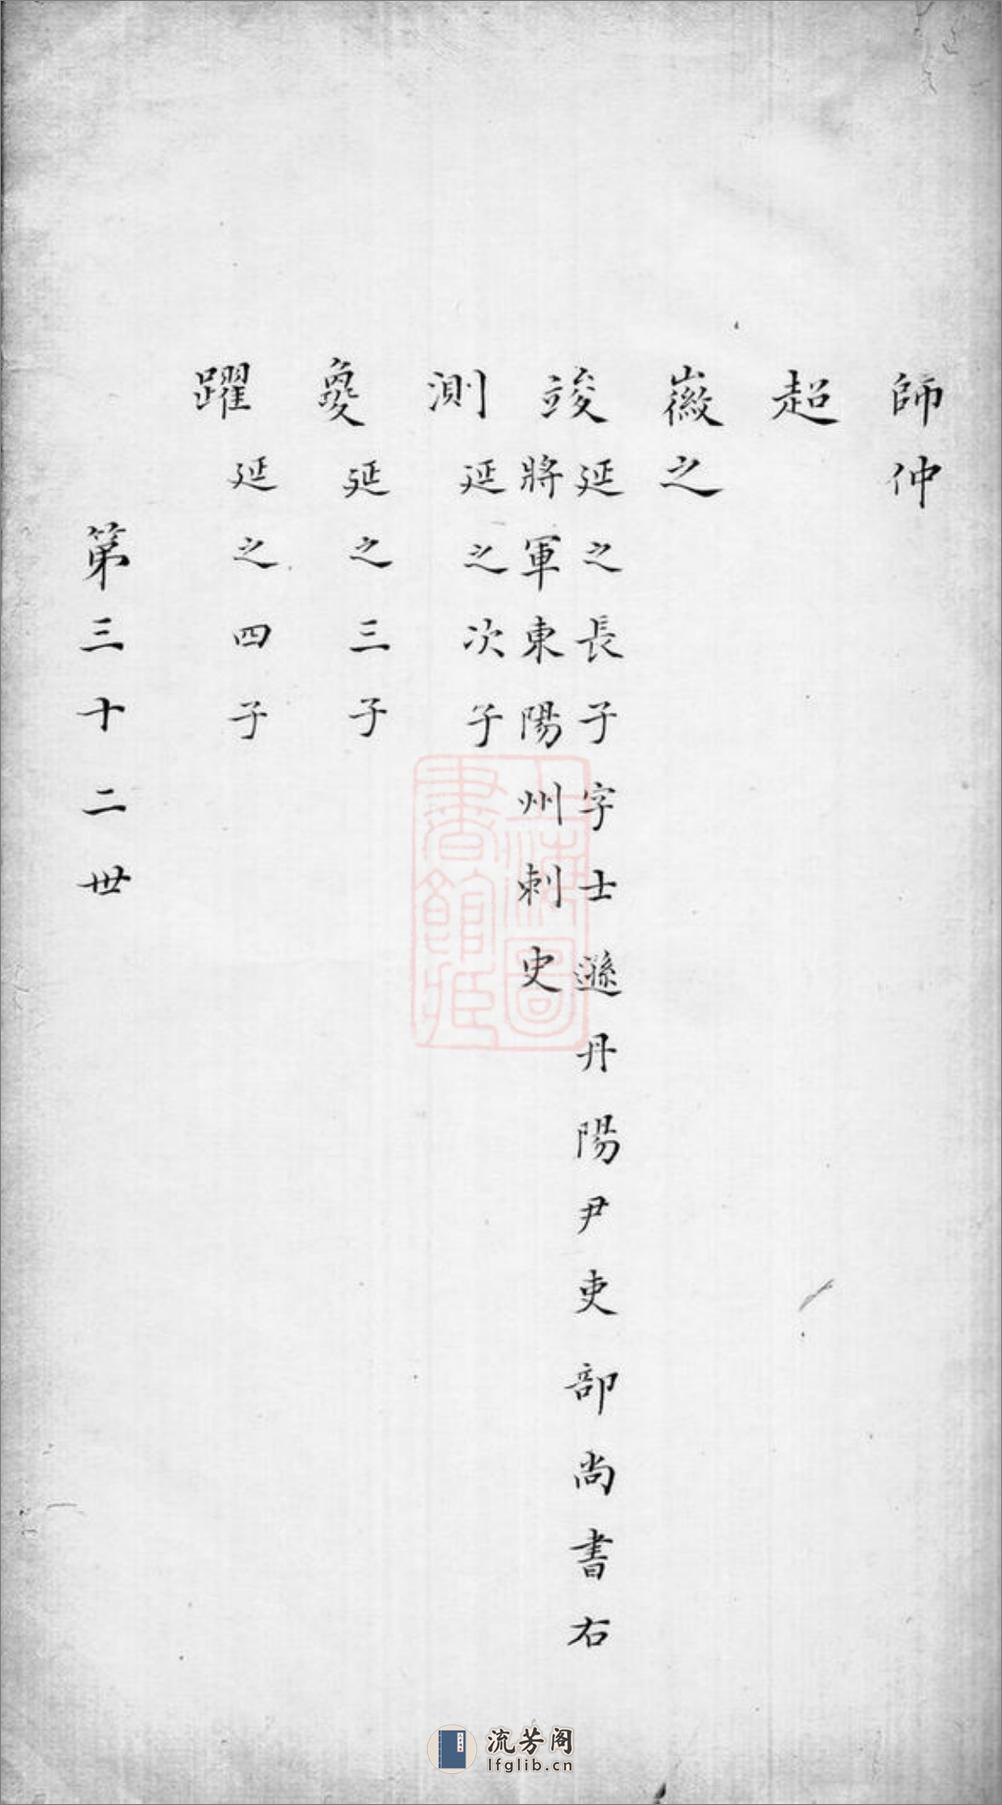 師仲
超
徽之
竣 延之長子字士遜丹陽尹吏部尚書右
將軍東陽州刺史
測 延之次子
㚟 延之三子
躍 延之四子
第三十二世
上海圖書館藏
流芳阁
lfglib.cn